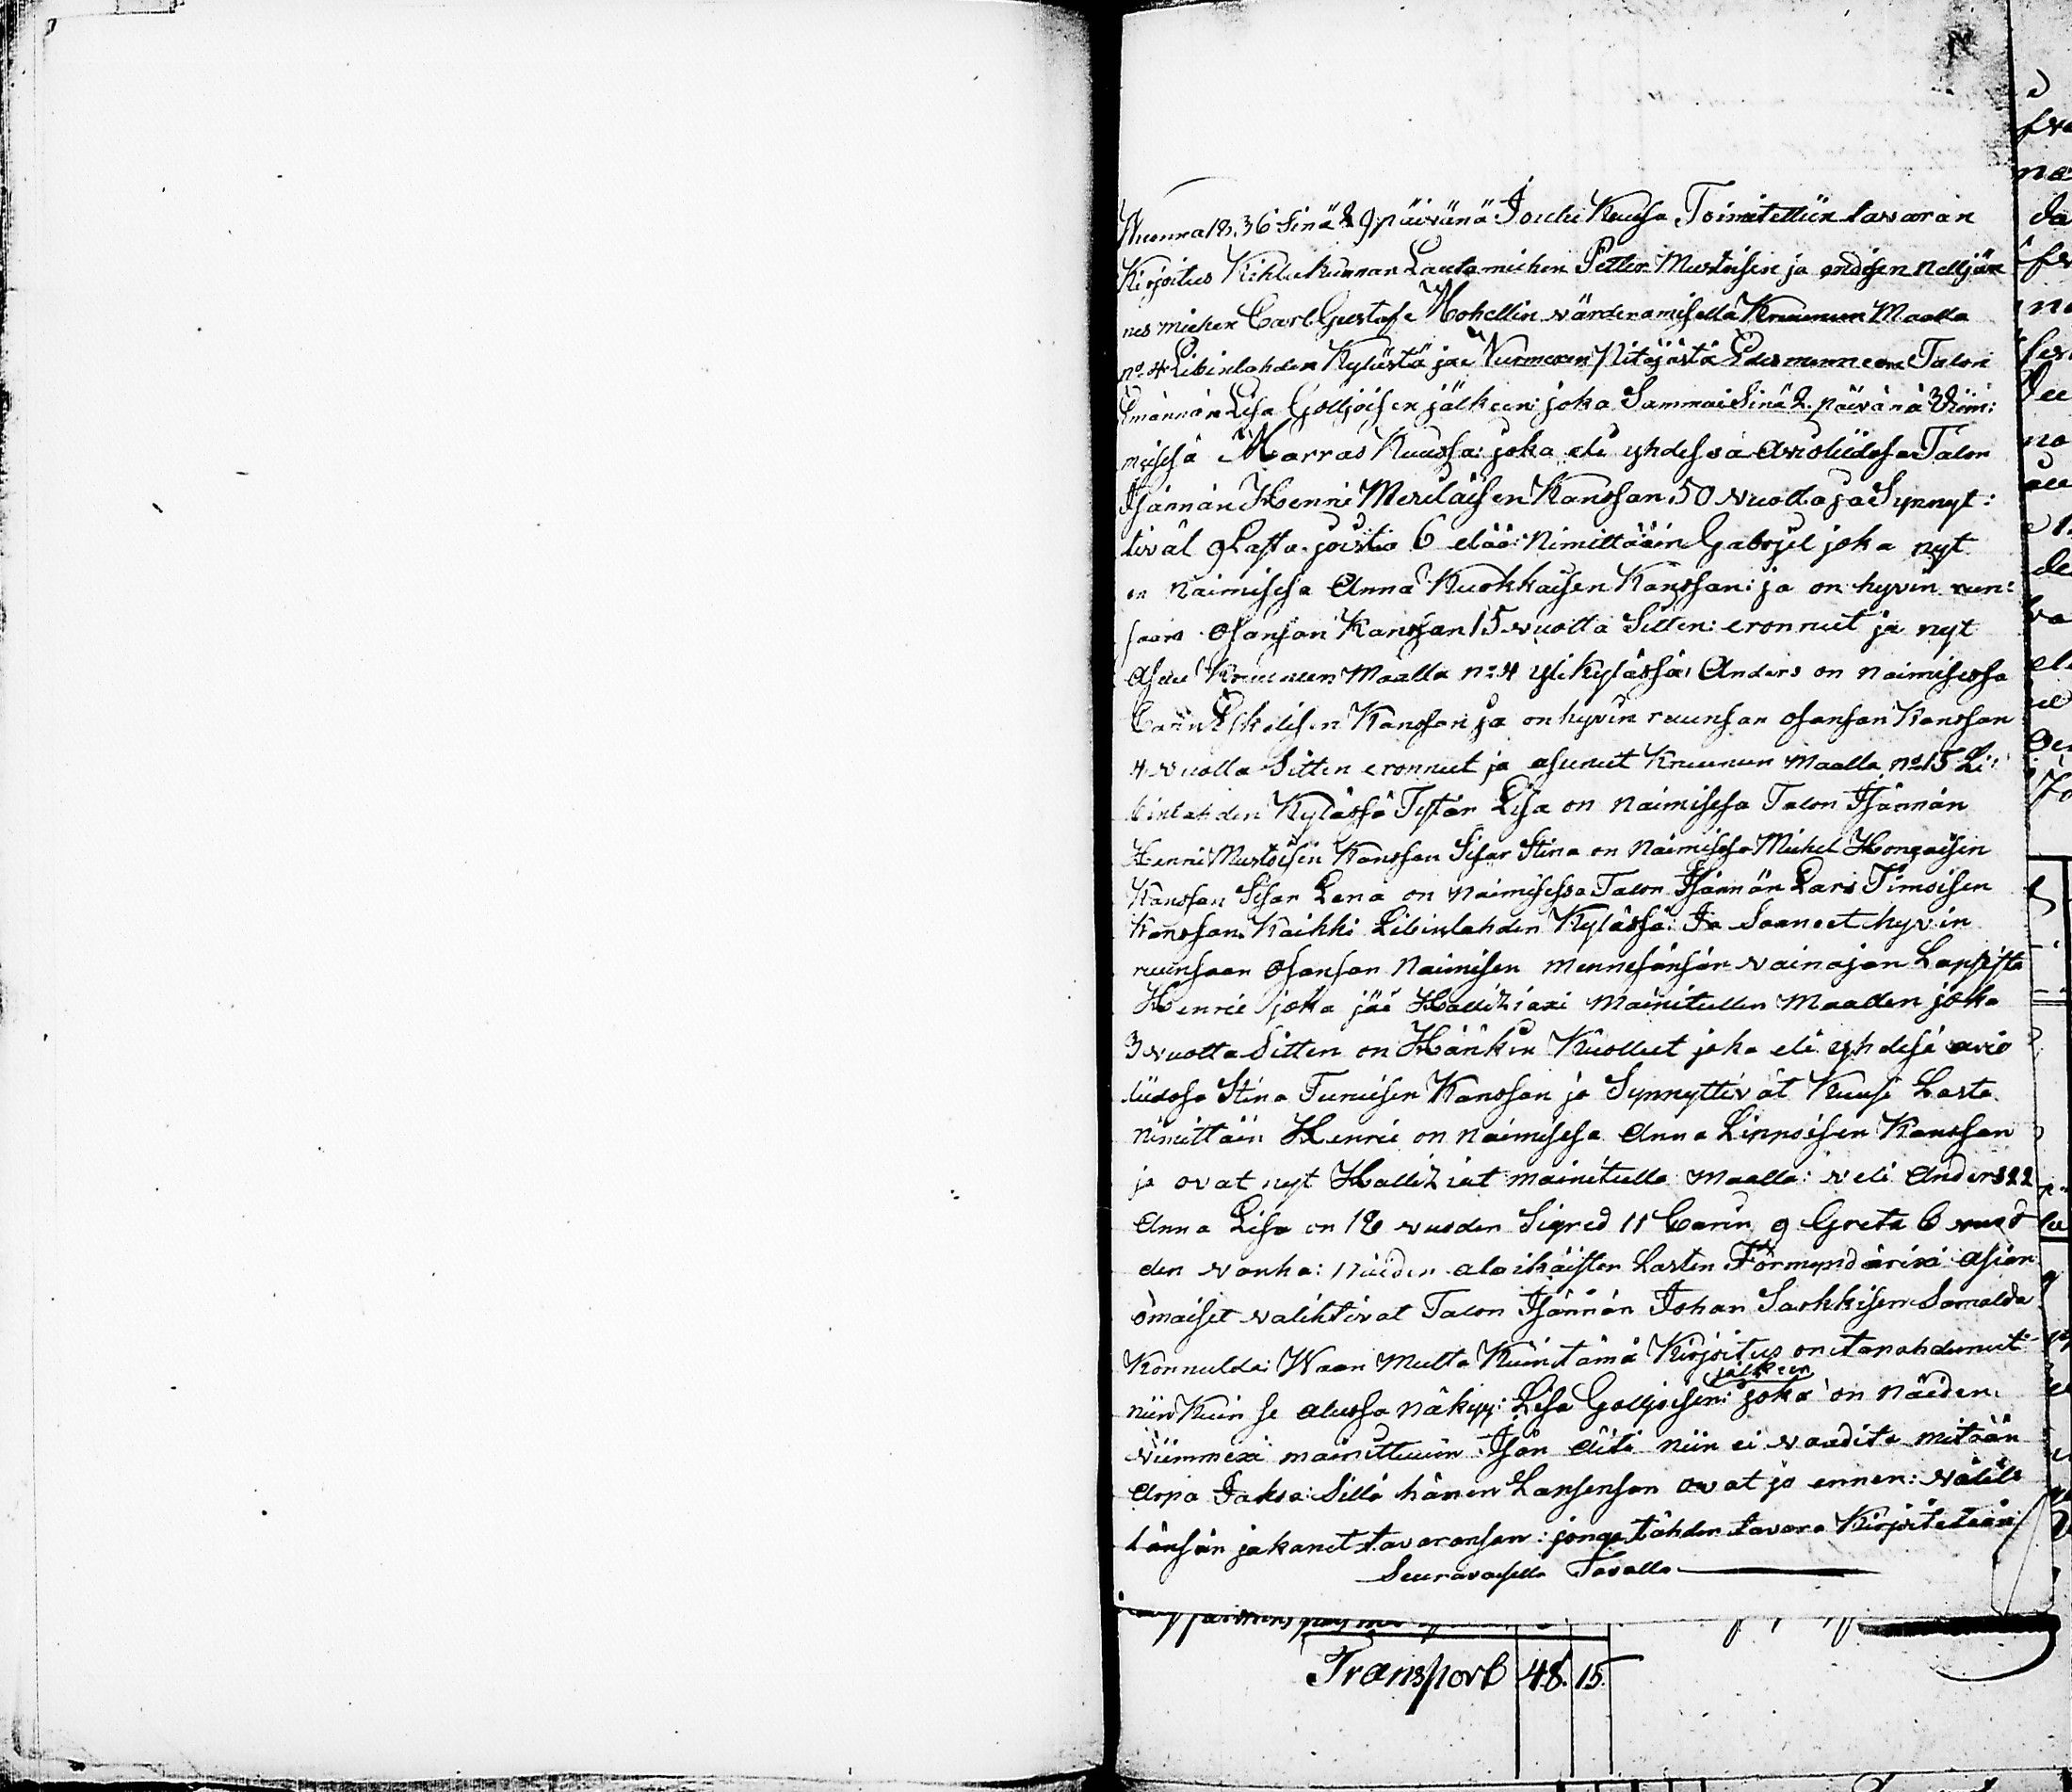 Wuonna 1836 sinä 29 päivänä Joulu Kuussa Toimitettiin tavaran
Kirjoitus Kihlakunnan Lautamiehen Petter Mustoisen ja endisen neljän
nes miehen Carl Gustaf Mohellin värderamisella Kruunun Maalla
no 4 Libinlahden Kylästä ja Nurmexen Pitäjästä Edesmenneen Talon
Emännän Lisa Golljoisen jälkeen: joka Sammui Sinä 2 päivänä Viim:
meisessä Marras Kuussa: joka eli yhdessä Avioliidossa Talon
Isännän Henri Meriläisen Kanssan 50 Vuotta ja Synnyt:
tivät 9 Lasta. joista 6 elää: Nimittäin Gabrjel joka nyt
on Naimisessa Anna Kuokkaisen Kanssan: ja on hyvin run:
saan Osansan Kanssan 15 vuotta Sitten: eronnut ja nyt
Asuu Kruunun Maalla no 4 ylikylässä: Anders on naimisessa
Carin Eskelisen Kanssan ja on hyvin ruunsan osansan Kanssan
4 vuotta Sitten eronnut ja asunut Kruunun Maalla no 15 Li:
binlahden Kylässä Tytär Lisa on Naimisessa Talon Isännän
Henri Mustoisen Kanssan Sisar Stina on Naimisessa Michel Hongaisen
Kanssan Sisar Lena on Naimisessa Talon Isännän Lars Timoisen
Kanssan. Kaikki Libinlahden Kylässä: Ja Saaneet hyvin
ruunsaan Osansan Naimisen mennesänsän vainajan Lapsista
Henric joka jäi Hallitziaxi Mainitullen Maallen joka
3 vuotta Sitten on Hänkin Kuollut joka eli yhdesä avio
liidossa Stina Turuisen Kanssan ja Synnyttivät Kuusi Lasta
nimittäin Henric on naimisessa Anna Linnoisen Kanssan
ja ovat nyt Hallitziat mainitulla Maalla: veli Anders 22
Anna Lisa on 18 vuoden Sigred 11 Carin 9 Greta 6 vuod
den vanha: Näiden alaikäisten Lasten Förmyndärixi Asian
omaiset valihtivat Talon Isännän Johan Sarkkisen Samalda
Konnulda: Waan Mutta Kuin tämä Kirjoitus on tapahdunut
jälkeen
niin Kuin se alussa näkyy: Lisa Golljoisen: joka on näiden
viimmexi mainittuiin Isän äiti niin ei vaadita mitään
Arpa Jakoa: Sillä hänen Lapsensan ovat jo ennen: välil
länsän jakanet tavaransan: jonga tähden tavara Kirjoitetaan
Seuravaisella Tavalla
Transport 48. 15.